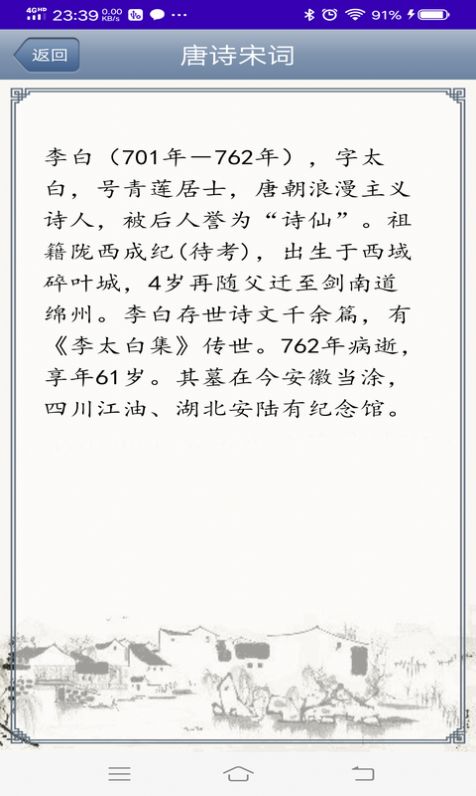 4G HD 23:39 0.00 KB/s 91%
返回
唐诗宋词
李白（701年－762年），字太
白，号青莲居士，唐朝浪漫主义
诗人，被后人誉为“诗仙”。祖
籍陇西成纪(待考)，出生于西域
碎叶城，4岁再随父迁至剑南道
绵州。李白存世诗文千余篇，有
《李太白集》传世。762年病逝，
享年61岁。其墓在今安徽当涂，
四川江油、湖北安陆有纪念馆。